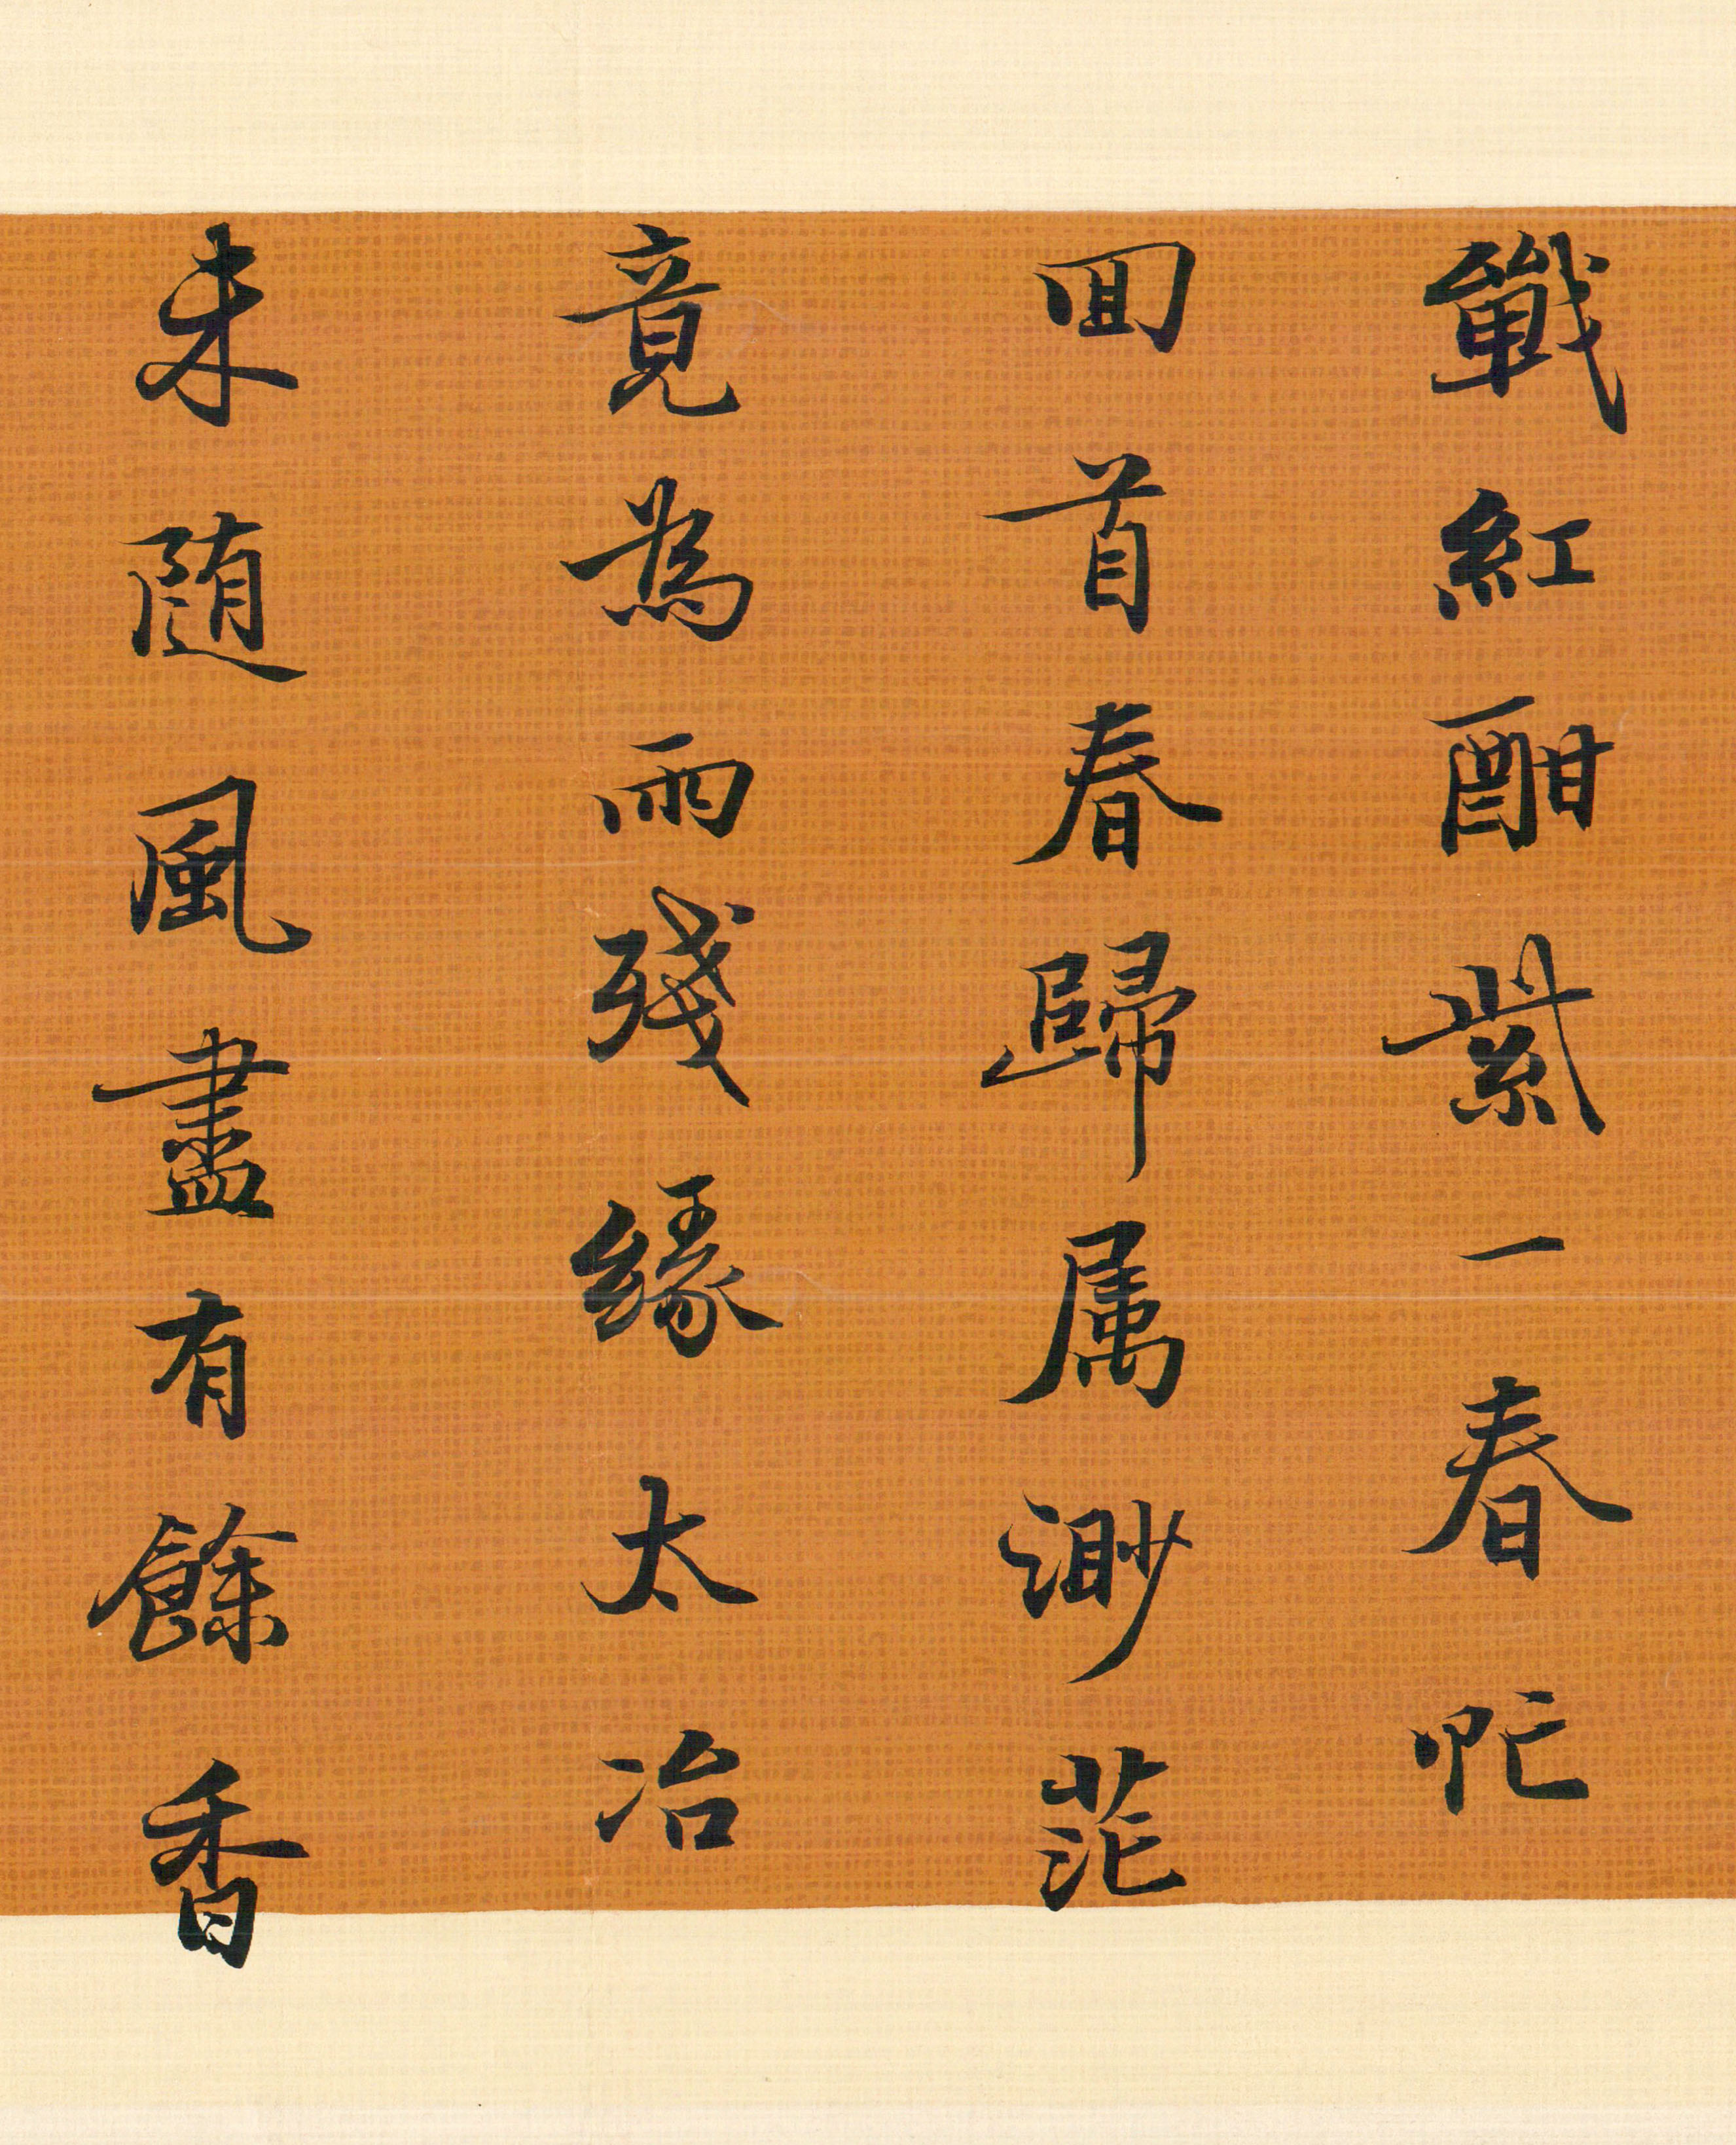 戰紅酣紫一春忙
回首春歸属渺茫
竟為雨殘緣太冶
未随風盡有餘香